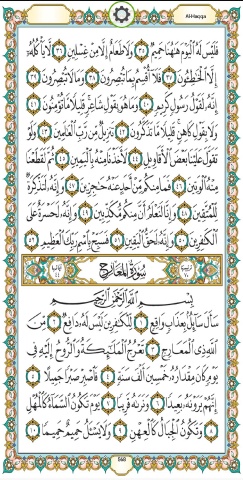 Al-Haqqa
فَلَيْسَ لَهُ الْيَوْمَ هَاهُنَا حَمِيمٌ ٣٥ وَلَا طَعَامٌ إِلَّا مِنْ غِسْلِينٍ ٣٦ لَا يَأْكُلُهُ
إِلَّا الْخَاطِئُونَ ٣٧ فَلَا أُقْسِمُ بِمَا تُبْصِرُونَ ٣٨ وَمَا لَا تُبْصِرُونَ ٣٩
إِنَّهُ لَقَوْلُ رَسُولٍ كَرِيمٍ ٤٠ وَمَا هُوَ بِقَوْلِ شَاعِرٍ قَلِيلًا مَا تُؤْمِنُونَ ٤١
وَلَا بِقَوْلِ كَاهِنٍ قَلِيلًا مَا تَذَكَّرُونَ ٤٢ تَنْزِيلٌ مِنْ رَبِّ الْعَالَمِينَ ٤٣ وَلَوْ
تَقَوَّلَ عَلَيْنَا بَعْضَ الْأَقَاوِيلِ ٤٤ لَأَخَذْنَا مِنْهُ بِالْيَمِينِ ٤٥ ثُمَّ لَقَطَعْنَا
مِنْهُ الْوَتِينَ ٤٦ فَمَا مِنْكُمْ مِنْ أَحَدٍ عَنْهُ حَاجِزِينَ ٤٧ وَإِنَّهُ لَتَذْكِرَةٌ
لِلْمُتَّقِينَ ٤٨ وَإِنَّا لَنَعْلَمُ أَنَّ مِنْكُمْ مُكَذِّبِينَ ٤٩ وَإِنَّهُ لَحَسْرَةٌ عَلَى
الْكَافِرِينَ ٥٠ وَإِنَّهُ لَحَقُّ الْيَقِينِ ٥١ فَسَبِّحْ بِاسْمِ رَبِّكَ الْعَظِيمِ ٥٢
سُورَةُ الْمَعَارِجِ
بِسْمِ اللَّهِ الرَّحْمَٰنِ الرَّحِيمِ
سَأَلَ سَائِلٌ بِعَذَابٍ وَاقِعٍ ١ لِلْكَافِرِينَ لَيْسَ لَهُ دَافِعٌ ٢ مِنَ
اللَّهِ ذِي الْمَعَارِجِ ٣ تَعْرُجُ الْمَلَائِكَةُ وَالرُّوحُ إِلَيْهِ فِي
يَوْمٍ كَانَ مِقْدَارُهُ خَمْسِينَ أَلْفَ سَنَةٍ ٤ فَاصْبِرْ صَبْرًا جَمِيلًا ٥
إِنَّهُمْ يَرَوْنَهُ بَعِيدًا ٦ وَنَرَاهُ قَرِيبًا ٧ يَوْمَ تَكُونُ السَّمَاءُ كَالْمُهْلِ
٨ وَتَكُونُ الْجِبَالُ كَالْعِهْنِ ٩ وَلَا يَسْأَلُ حَمِيمٌ حَمِيمًا ١٠
568